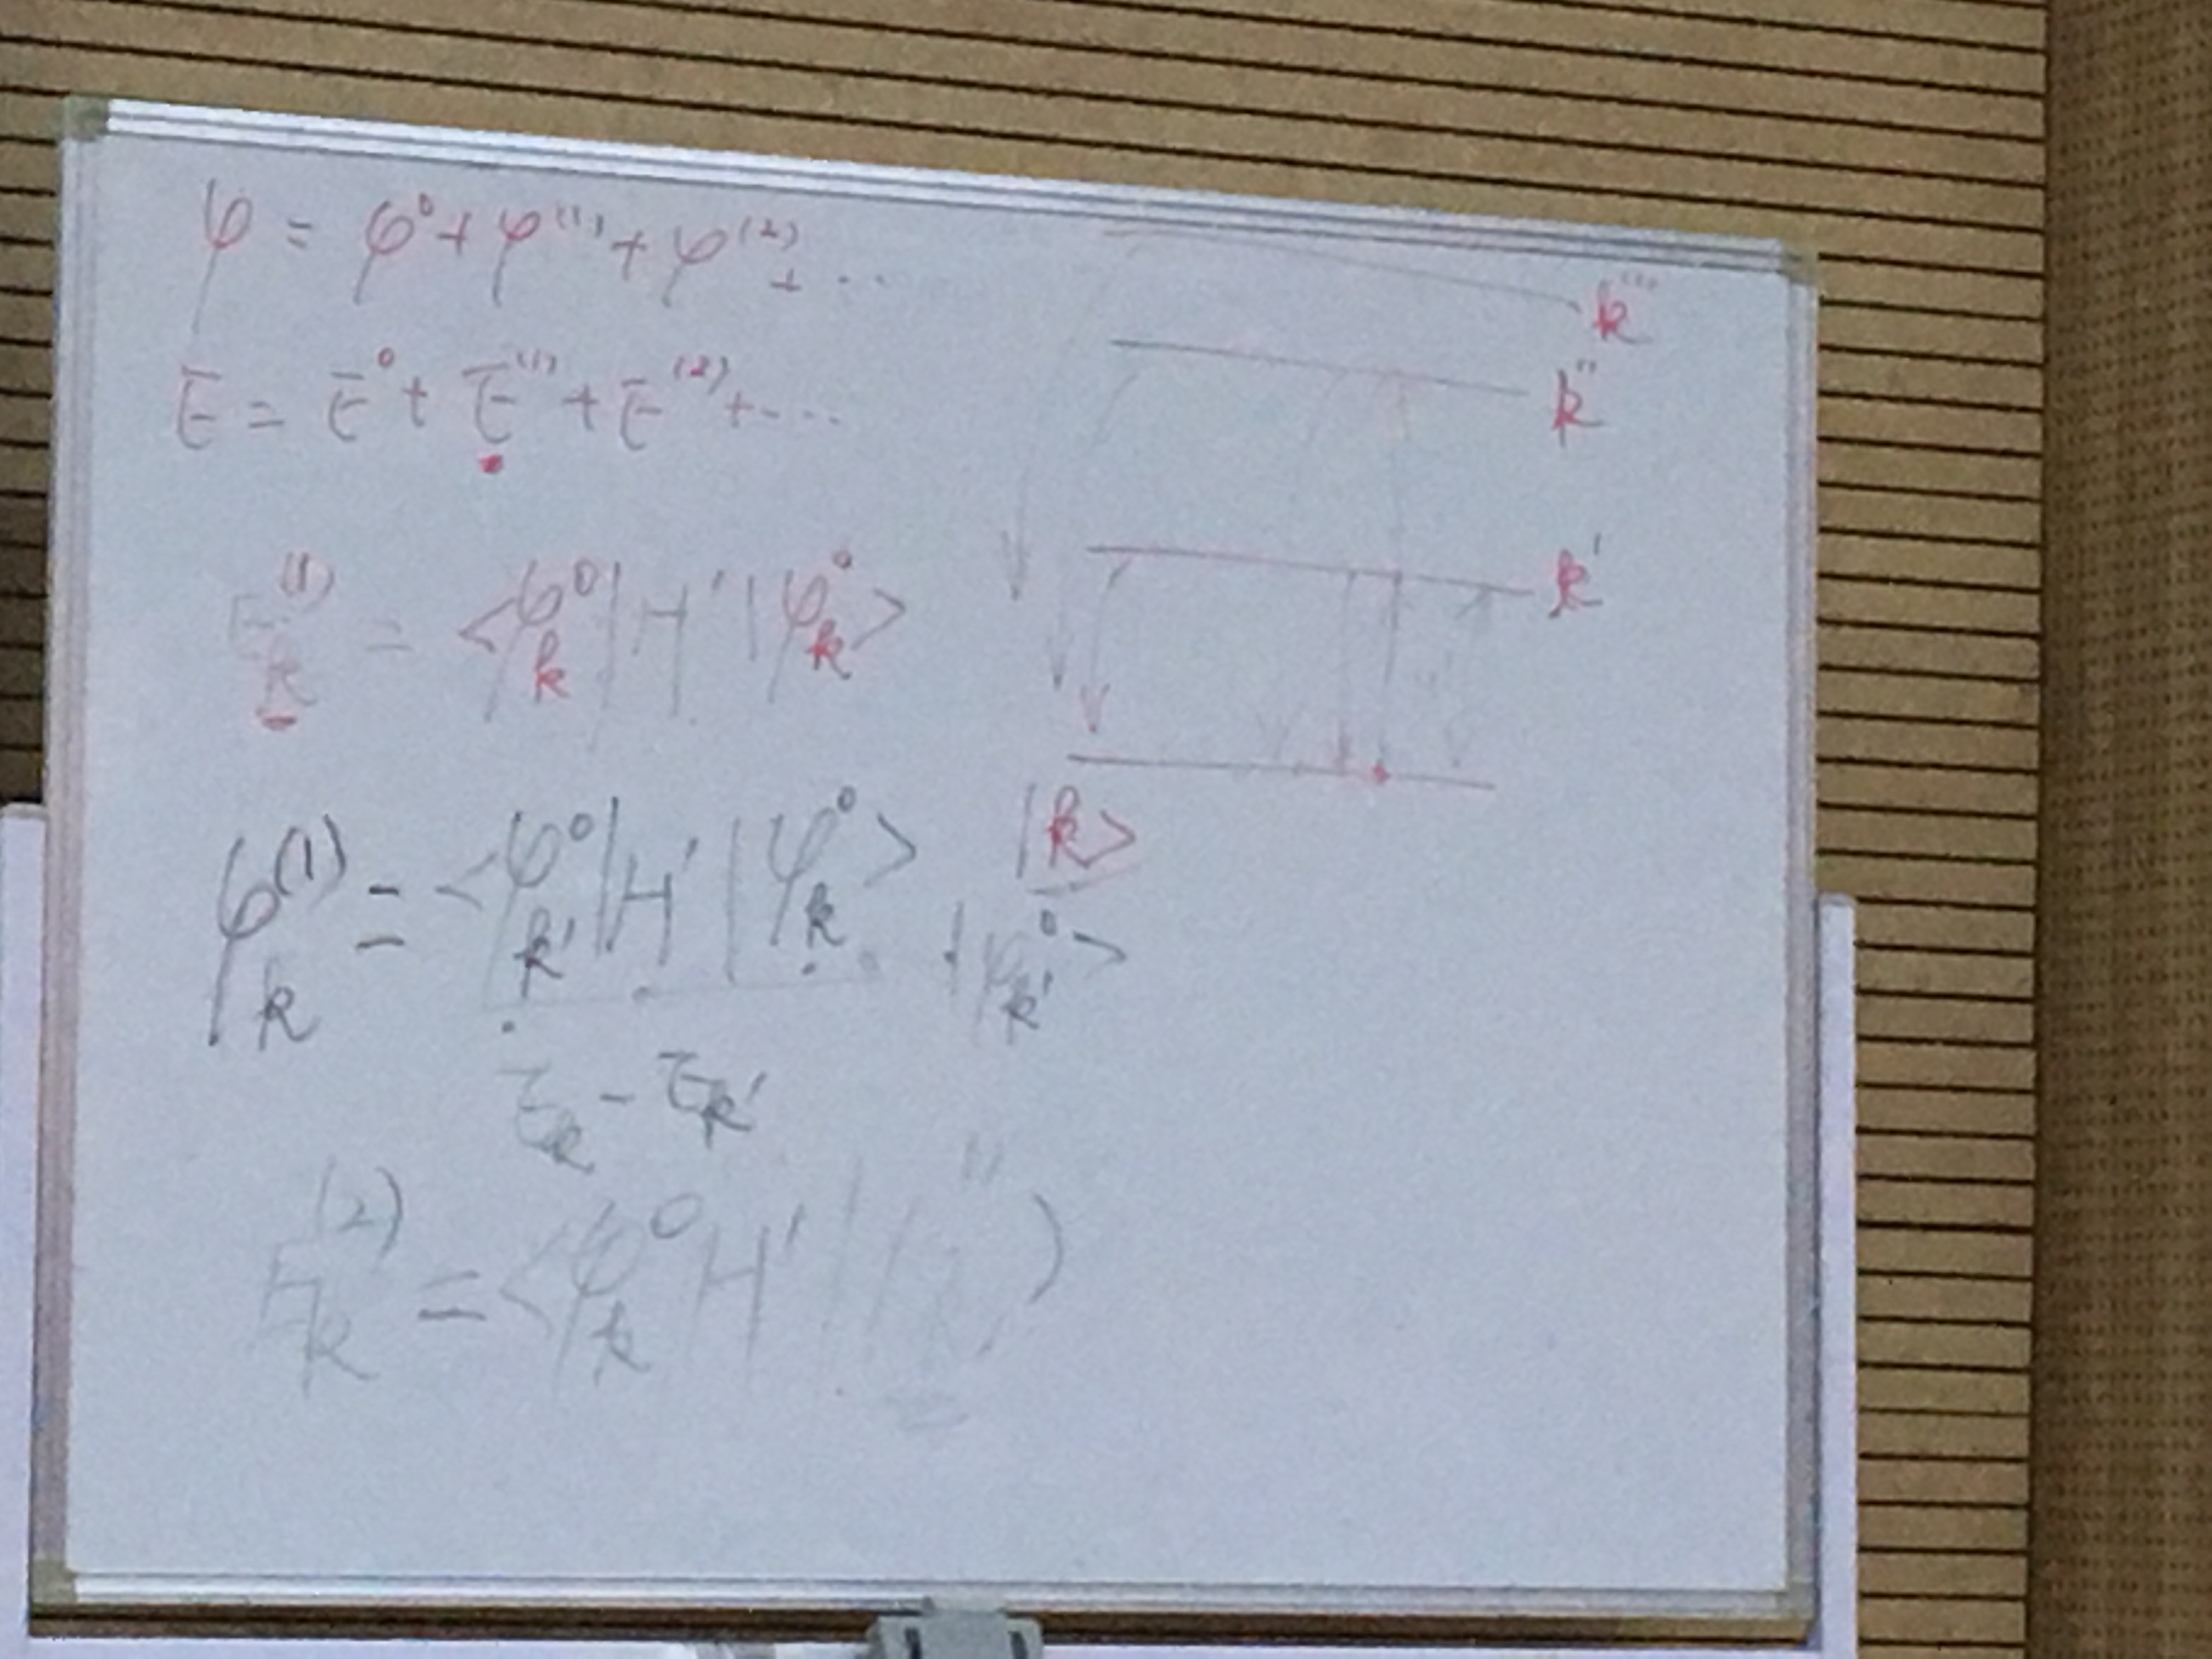 φ = φ⁰ + φ⁽¹⁾ + φ⁽²⁾ + ...
E = E⁰ + E⁽¹⁾ + E⁽²⁾ + ...
E_k⁽¹⁾ = <φ_k⁰|H'|φ_k⁰>
φ_k⁽¹⁾ = <φ_k'⁰|H'|φ_k⁰> / (E_k - E_k') |φ_k'⁰>
E_k⁽²⁾ = <φ_k⁰ H'|
k'''
k''
k'
|k>